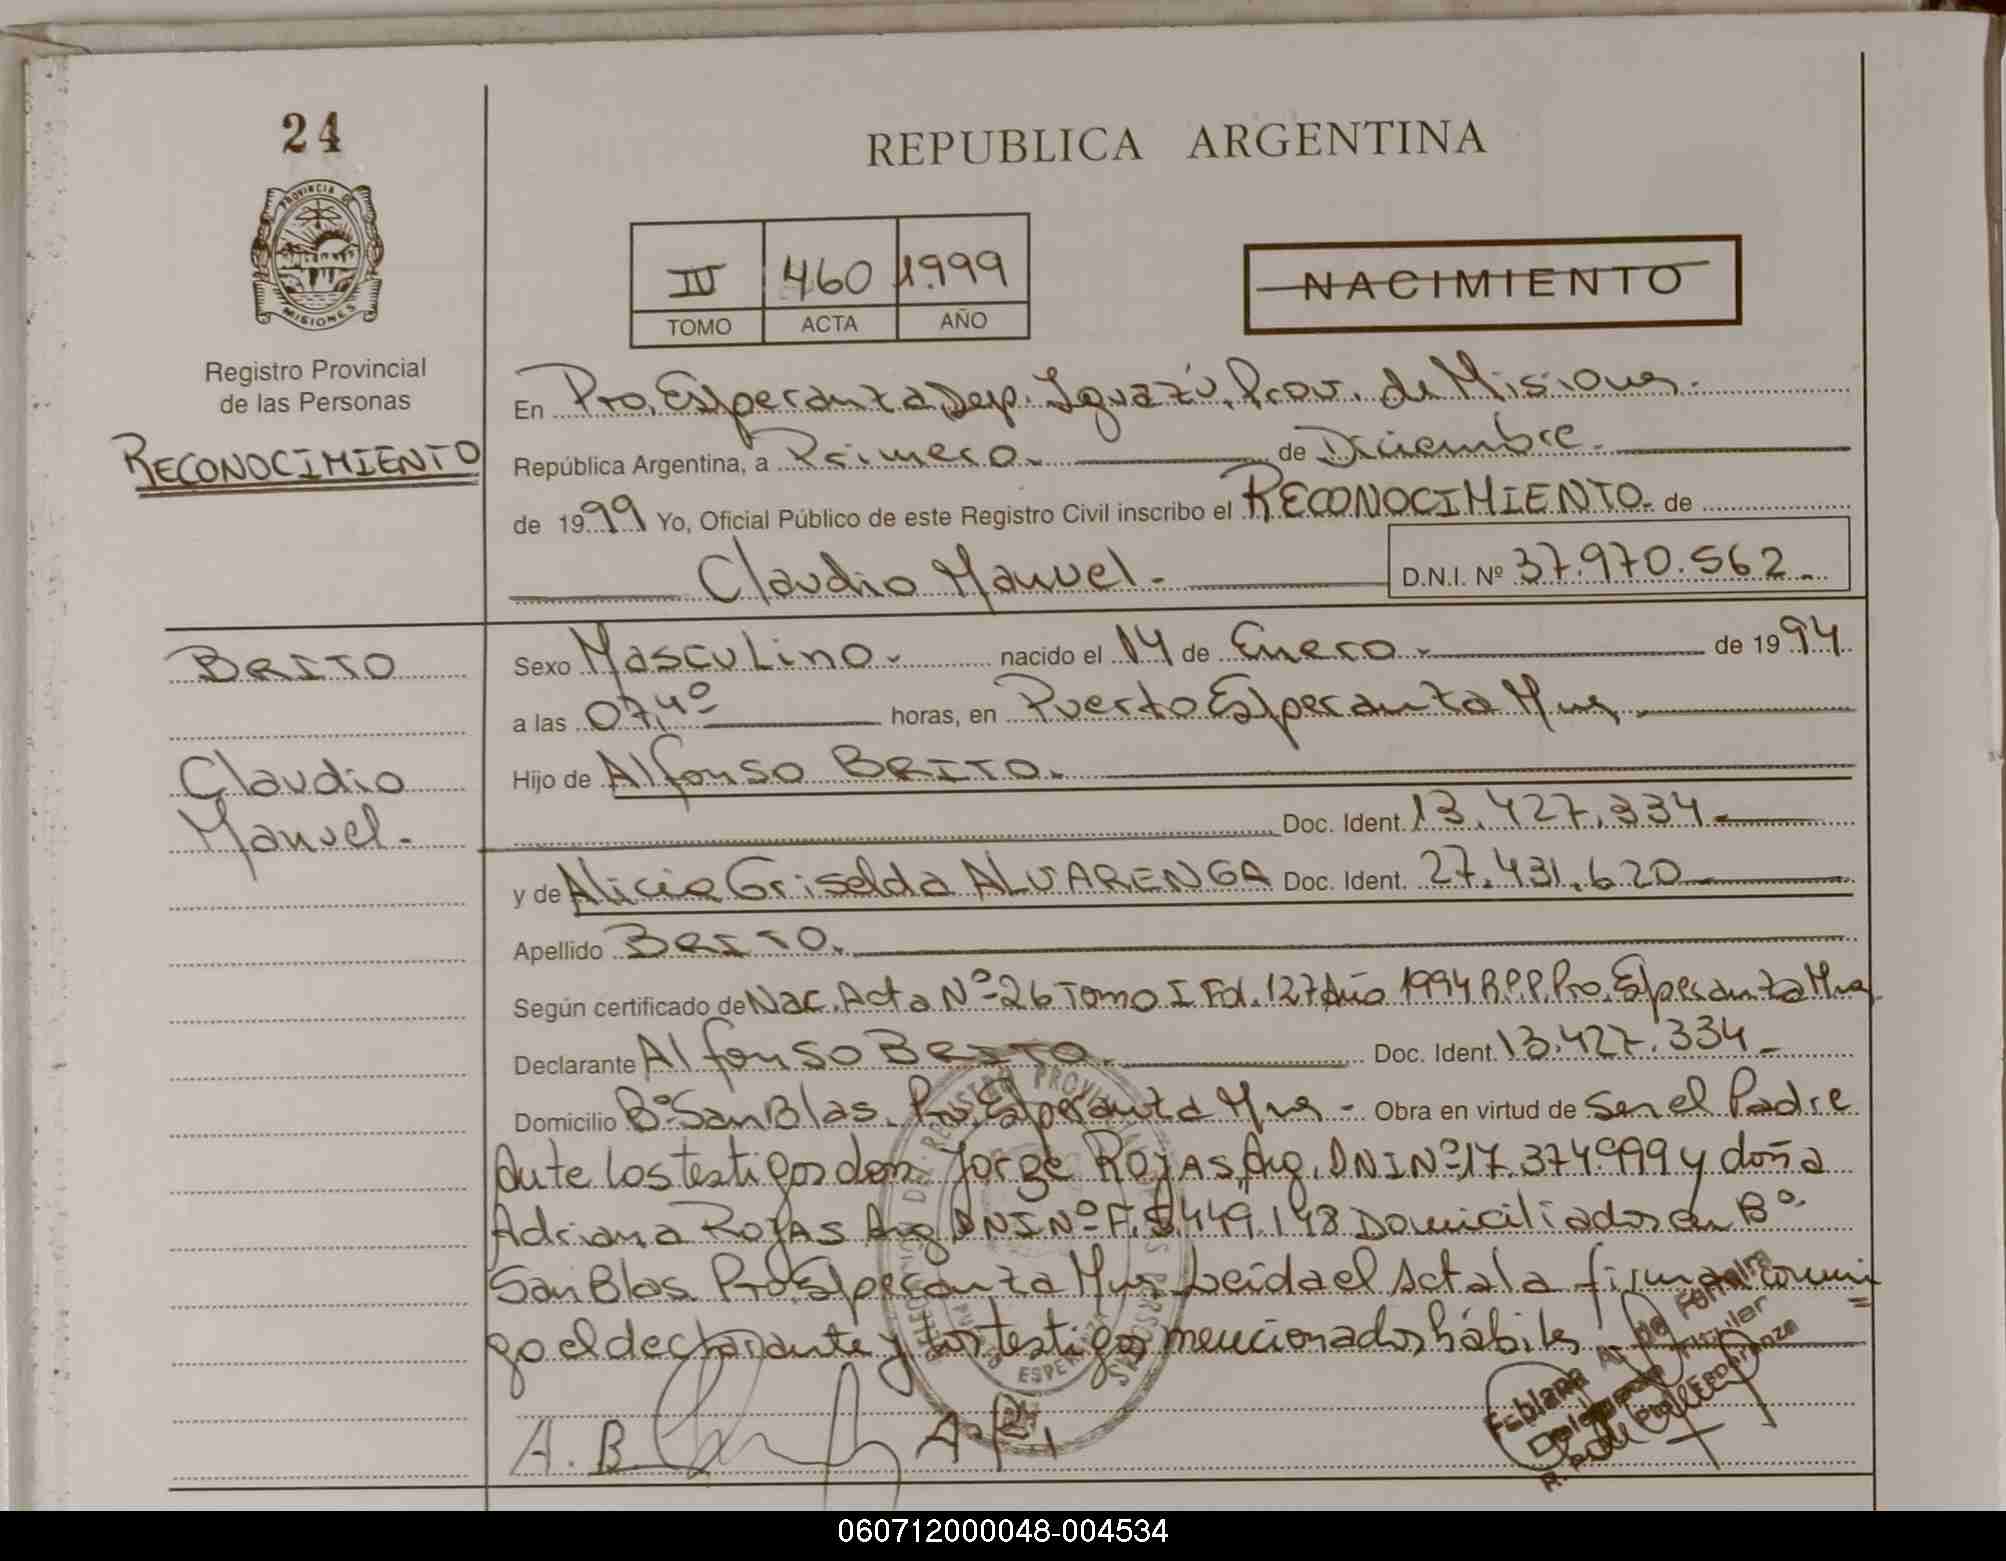 24
REPUBLICA ARGENTINA
PROVINCIA DE
MISIONES
Registro Provincial
de las Personas
RECONOCIMIENTO
IV 460 1.999
TOMO ACTA AÑO
NACIMIENTO
En Pto. Esperanza Dep. Iguazú, Prov. de Misiones.
República Argentina, a Primero. de Diciembre.
de 1999 Yo, Oficial Público de este Registro Civil inscribo el RECONOCIMIENTO. de
Claudio Manuel. D.N.I. Nº 37.970.562
BRITO
Claudio
Manuel.
Sexo Masculino. nacido el 14 de Enero. de 1994.
a las 07,4º horas, en Puerto Esperanza Mns.
Hijo de Alfonso BRITO.
Doc. Ident. 13.427.334
y de Alicia Griselda ALVARENGA Doc. Ident. 27.431.620
Apellido BRITO.
Según certificado de Nac. Acta Nº 26 Tomo I Fol. 127 Año 1994 R.P.P. Pto. Esperanza Mns
Declarante Alfonso BRITO. Doc. Ident. 13.427.334
Domicilio Bº San Blas. Pto. Esperanza Mns - Obra en virtud de Ser el Padre
Ante los testigos don Jorge ROJAS, Arg. DNI Nº 17.374.999 y doña
Adriana ROJAS Arg DNI Nº F.5.449.148 Domiciliados en Bº
San Blas. Pto. Esperanza Mns Leida el Acta la firman conmi
go el declarante y los testigos mencionados hábiles
A.B A.R.
Fabiana A. de Ferreira
Delegada Titular
R. P. de Pto. Esperanza
060712000048-004534